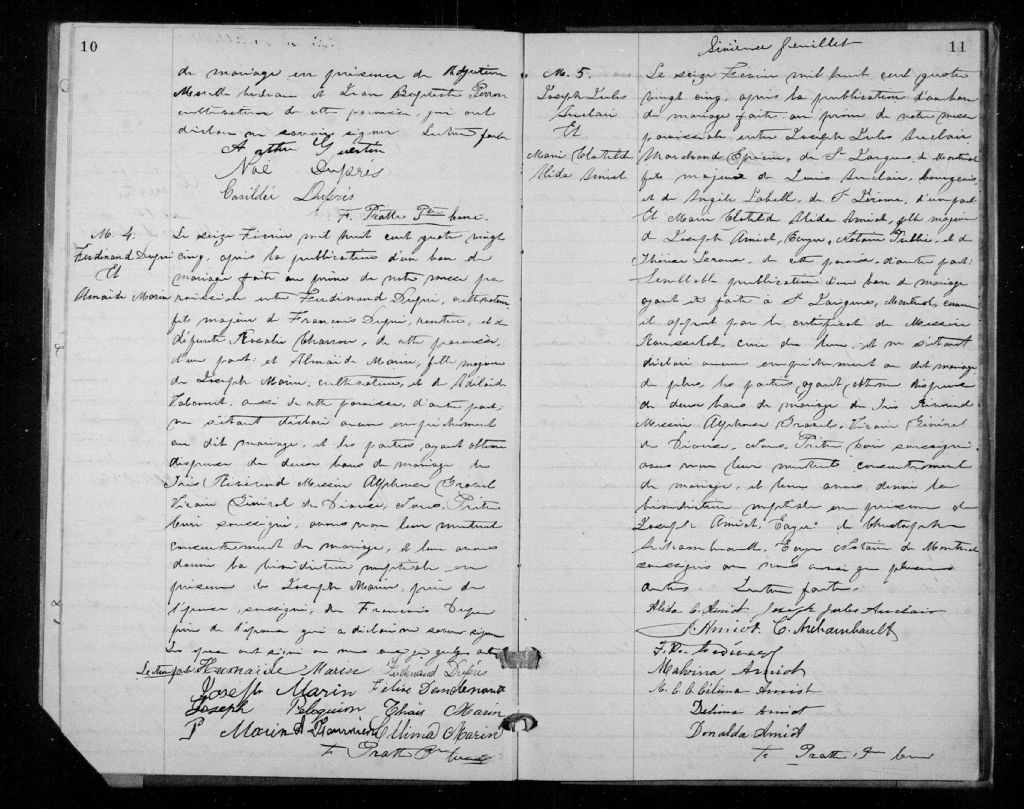 10
de mariage en présence de Adjuteur
et Jean Baptiste Perron
cultivateurs de cette paroisse, qui ont
déclaré ne savoir signer Lecture faite
Arthur Guertin
Noé Duprés
Casildée Duprés
F. Pratte Ptre curé.
M. 4.
Ferdinand Dupré
Et
Almaïde Marin
Le seize Février mil huit cent quatre vingt
cinq, après la publication d'un ban de
mariage faite au prône de notre messe pa
roissiale entre Ferdinand Dupré, cultivateur
fils majeur de François Dupré, rentier, et de
défunte Rosalie Charron, de cette paroisse,
d'une part: et Almaïde Marin, fille majeure
de Joseph Marin, cultivateur, et de Adélaïde
aussi de cette paroisse, d'autre part,
ne s'étant déclaré aucun empêchement
au dit mariage, et les parties ayant obtenu
dispense de deux bans de mariage du
Très Révérend Messire Alphonse Gravel
Vicaire Général du Diocèse, Nous, Prêtre
Curé soussigné, avons reçu leur mutuel
consentement de mariage, et leur avons
donné la bénédiction nuptiale en
présence de Joseph Marin, père de
l'épouse, soussigné, de François Dupré
père de l'époux qui a déclaré ne savoir signer
Les époux ont signé avec nous
Lecture faite
Ferdinand Dupré
Joseph Marin Féline Dandenault
Joseph Péloquin Thaïs Marin
P Marin Célima Marin
F. Pratte Ptre curé
Sixième feuillet
11
M. 5.
Joseph Jules
Auclair
Et
Marie Clotilde
Alida Amiot
Le seize Février mil huit cent quatre
vingt cinq, après la publication d'un ban
de mariage faite au prône de notre messe
paroissiale entre Joseph Jules Auclair
Marchand Epicier, de St Jacques, de Montréal
fils majeur de Louis Auclair, bourgeois,
et de Angèle Labelle, de St Jérome, d'une part
Et Marie Clotilde Alida Amiot, fille majeure
de Joseph Amiot, Ecuyer, Notaire Public, et de
de cette paroisse, d'autre part:
Semblable publication d'un ban de mariage
ayant été faite à St Jacques, Montréal, comme
il appert par le certificat de Messire
Rousselot, curé du lieu, et ne s'étant
déclaré aucun empêchement au dit mariage
de plus, les parties ayant obtenu dispense
de deux bans de mariage du Très Révérend
Messire Alphonse Gravel, Vicaire Général
du Diocèse, Nous, Prêtre Curé soussigné
avons reçu leur mutuel consentement
de mariage, et leur avons donné la
bénédiction nuptiale en présence de
Joseph Amiot, Ecuyer de Christophe
Archambault, Ecuyer Notaire de Montréal
soussignés avec nous ainsi que plusieurs
autres. Lecture faite.
Alida C. Amiot Joseph Jules Auclair
J. Amiot. C. Archambault
Malvina Amiot
M. C. C. Célima Amiot
Delima Amiot
Donalda Amiot
F. Pratte Ptre curé